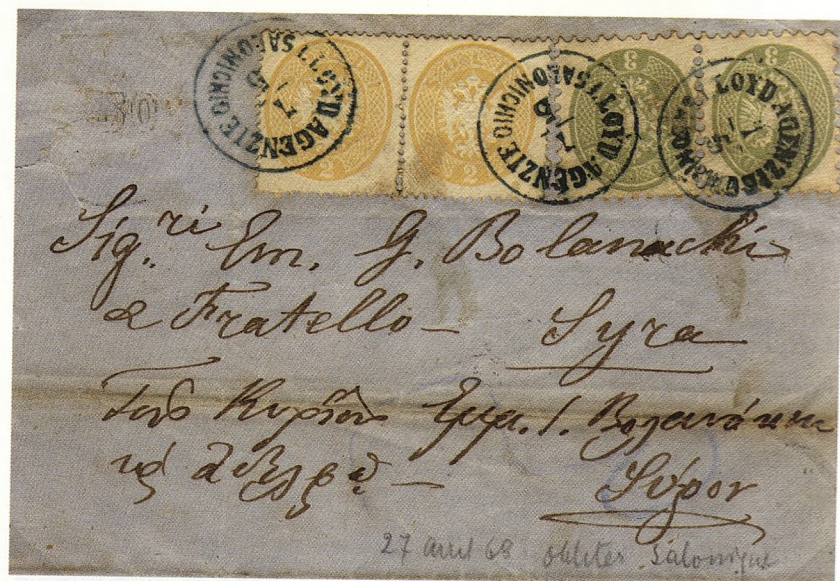 LLOYD AGENZIE SALONICHIO 7 5
LLOYD AGENZIE SALONICHIO 7 5
LLOYD AGENZIE SALONICHIO 7 5
2 2 3 3
Sig.ri Em. G. Bolanachi
& Fratello — Syra
Τους Κυρίους Εμμ. Γ. Βολανάκην
κς αδελφὸ — Σύρον
27 avril 68 Salonique